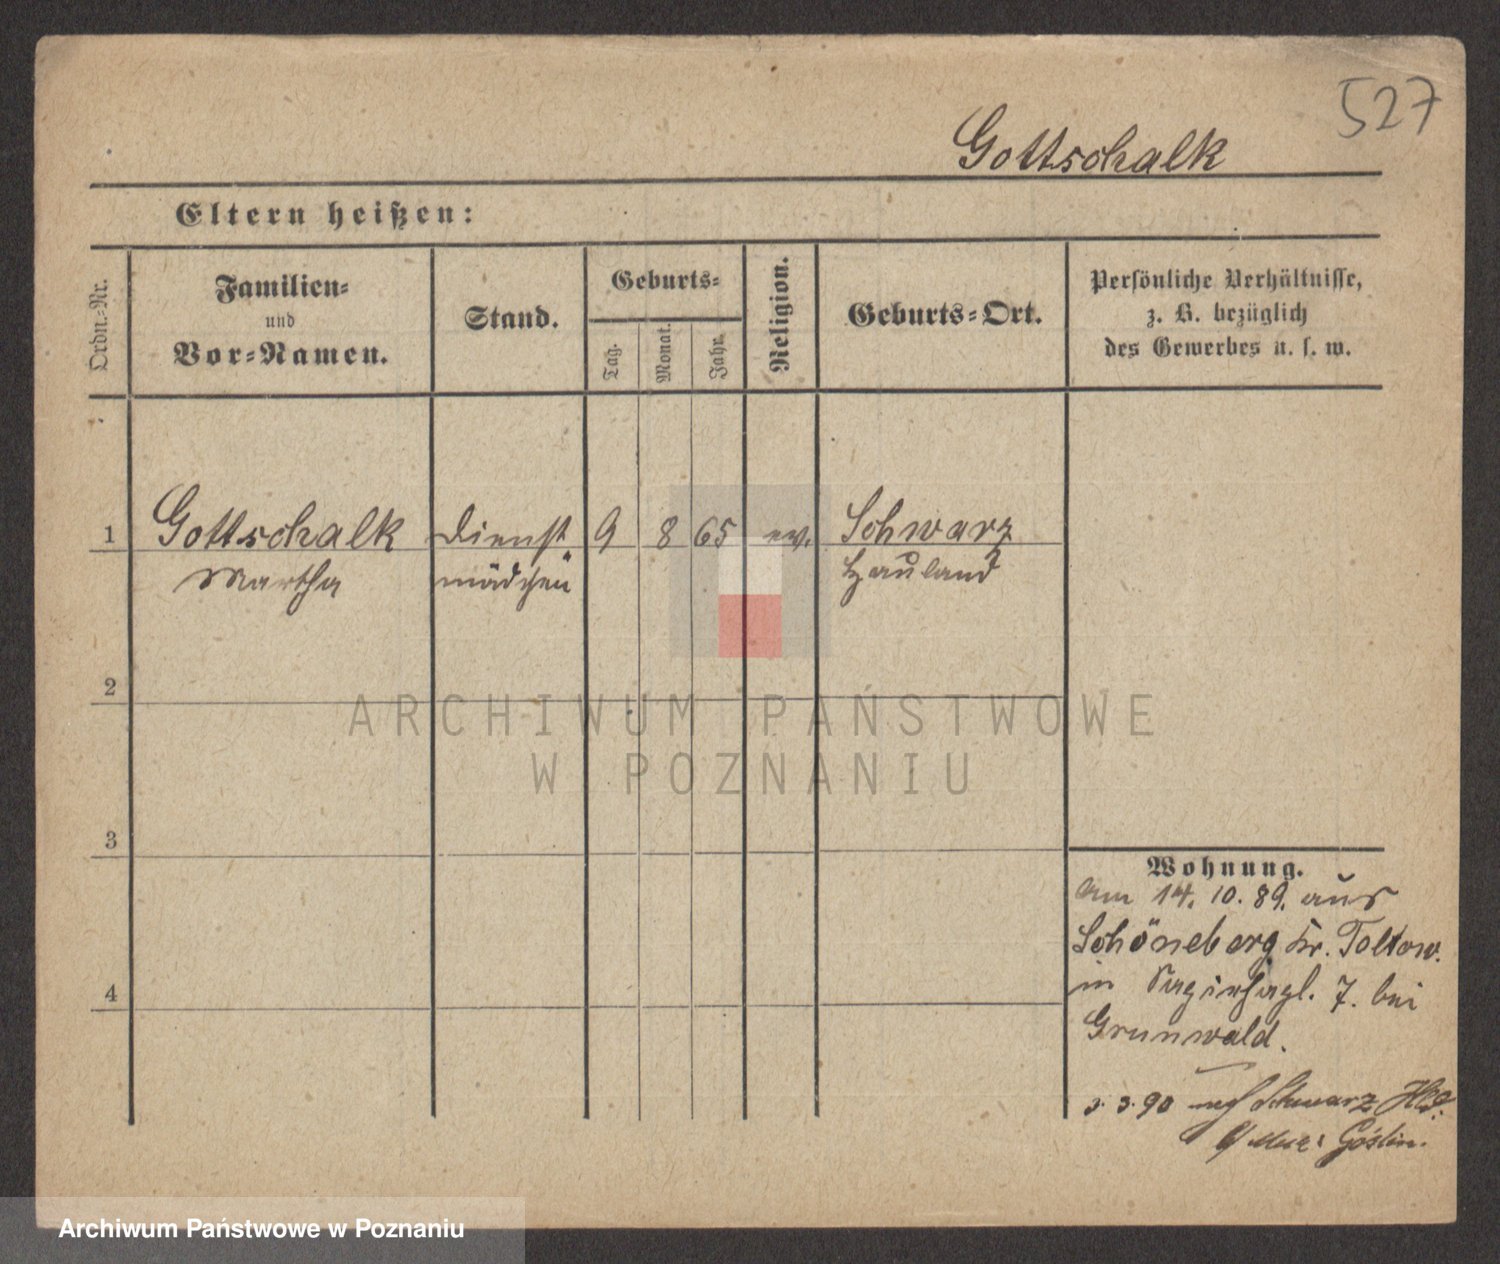 527
Gottschalk
Eltern heißen:
Ordn.-Nr.
Familien-
und
Vor-Namen.
Stand.
Geburts-
Tag.
Monat.
Jahr.
Religion.
Geburts-Ort.
Persönliche Verhältnisse,
z. B. bezüglich
des Gewerbes u. s. w.
1 Gottschalk Dienst 9 8 65 ev. Schwarz
Martha mädchen Hauland
2
3
4
Wohnung.
am 14. 10. 89. aus
Schöneberg Kr. Teltow.
in 7. bei
Grunwald.
3. 3. 90 nach Schwarz Hld.
Goslin.
ARCHIWUM PAŃSTWOWE
W POZNANIU
Archiwum Państwowe w Poznaniu